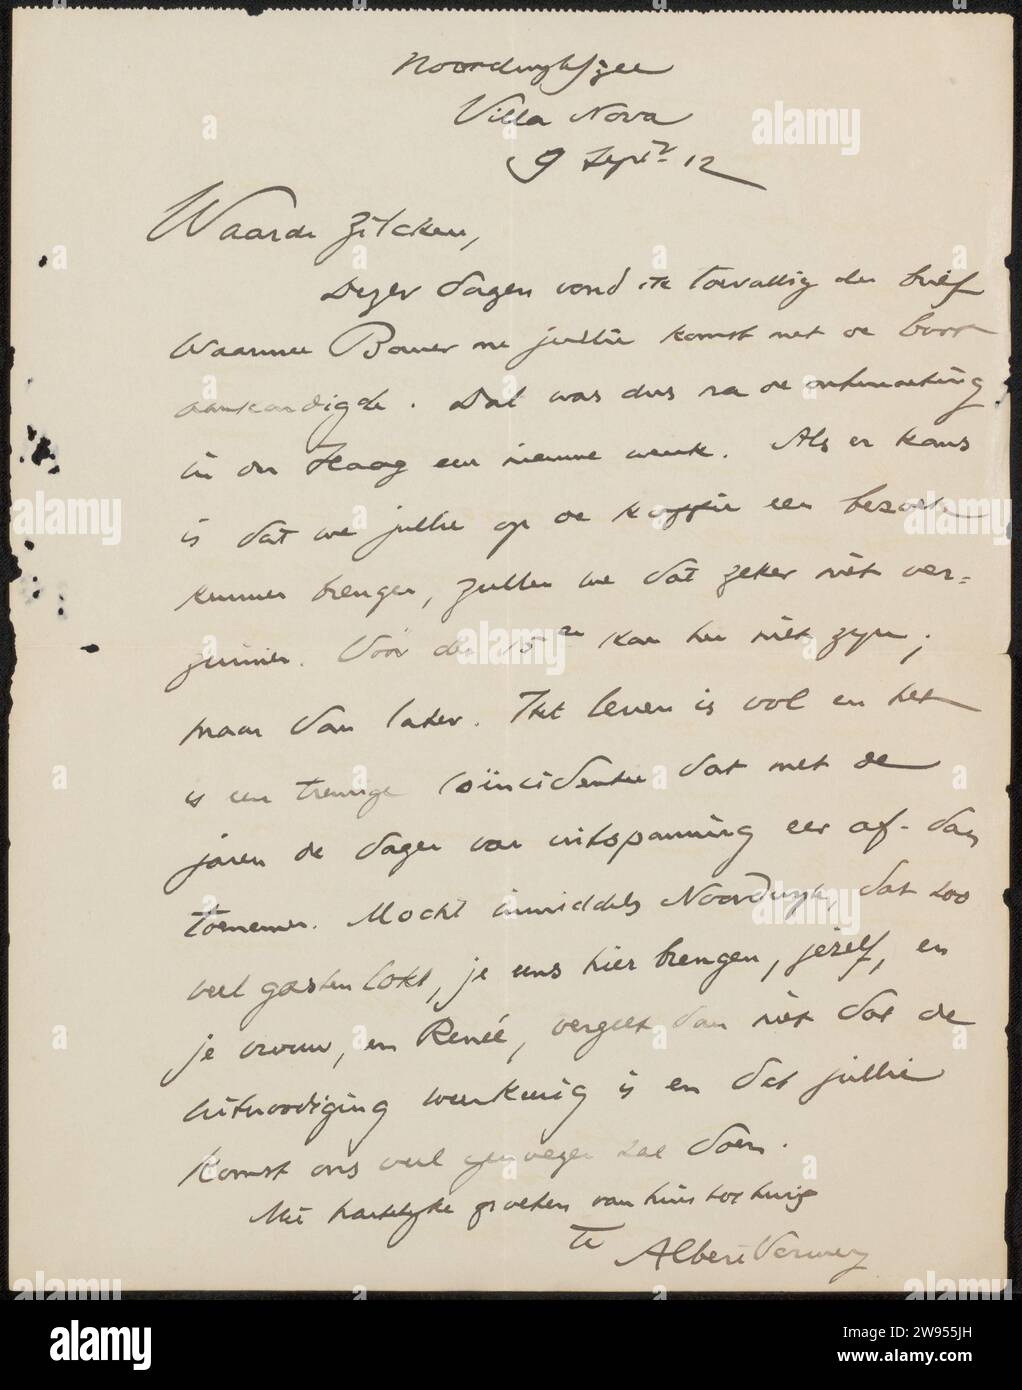 Noordwijk/zee
Villa Nova
9 Septr 12
Waarde Zilcken,
Dezer dagen vond ik toevallig den brief
waarmee Bauer me jullie komst met de boot
aankondigde. Dat was dus na de ontmoeting
in den Haag een nieuwe wenk. Als er kans
is dat we jullie op de koffie een bezoek
kunnen brengen, zullen we dat zeker niet ver=
zuimen. Vóór den 15en kan het niet zijn;
maar dan later. Het leven is vol en het
is een treurige coïncidentie dat met de
jaren de dagen van uitspanning eer af- dan
toenemen. Mocht inmiddels Noordwijk, dat zoo
veel gasten lokt, je eens hier brengen, jezelf, en
je vrouw, en Renée, vergeet dan niet dat de
uitnoodiging is en dat jullie
komst ons veel genoegen zal doen.
Met hartelijke groeten van huis tot huis
te Albert Verwey
alamy
a
www.alamy.com
Image ID: 2W955JH